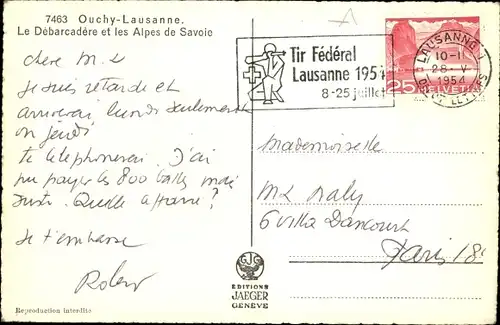 7463 Ouchy-Lausanne.
Le Débarcadère et les Alpes de Savoie
Tir Fédéral
Lausanne 1954
8-25 juillet
LAUSANNE 1
10-11
28. V
1954
25 HELVETIA
Chère M L
Je suis retardé et
arriverai lundi seulement
ou jeudi
te telephonerai. J'ai
pu payer les 800 balles mais
juste. Quelle affaire!
Je t'embrasse
Robert
Mademoiselle
ML Maly
6 villa Dancourt
Paris 18e
EDITIONS
JAEGER
GENÈVE
Reproduction interdite